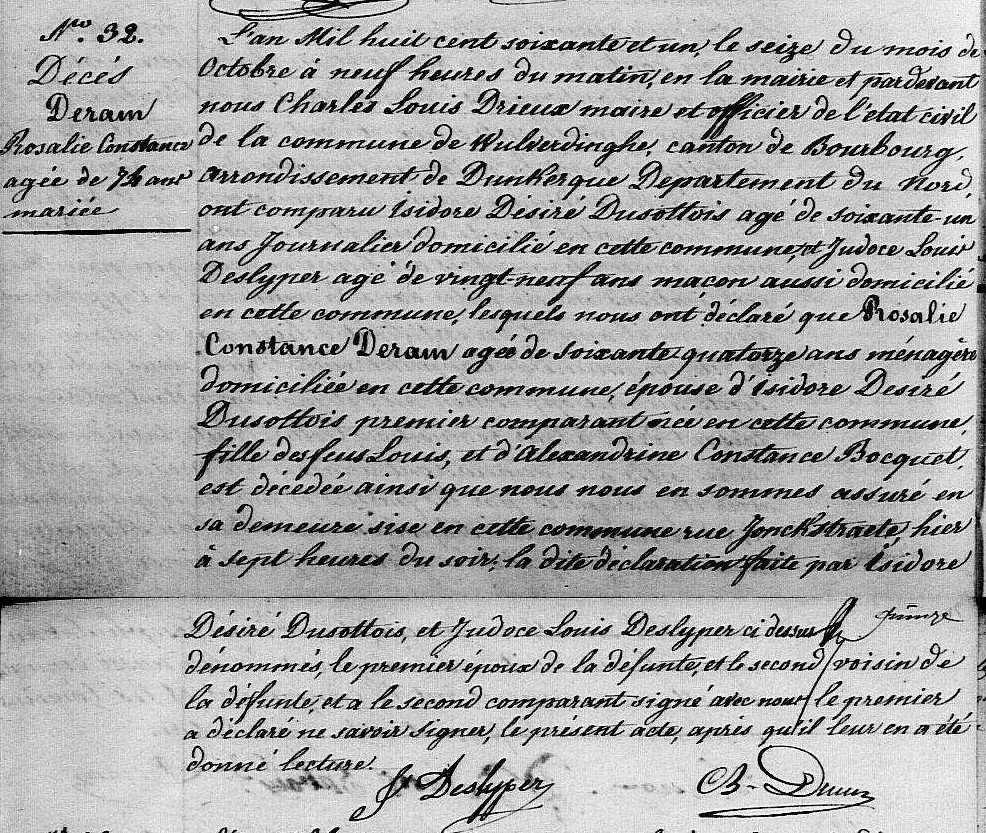 No. 32.
Décés
Deram
Rosalie Constance
agée de 74 ans
mariée
L'an Mil huit cent soixante et un, le seize du mois de
Octobre à neuf heures du matin, en la mairie et pardevant
nous Charles Louis Drieux maire et officier de l'etat civil
de la commune de Wulverdinghe, canton de Bourbourg,
arrondissement de Dunkerque Departement du Nord,
ont comparu Isidore Désiré Dusottois agé de soixante-un
ans Journalier domicilié en cette commune, et Judoce Louis
Deslyper agé de vingt-neuf ans maçon aussi domicilié
en cette commune, lesquels nous ont déclaré que Rosalie
Constance Deram agée de soixante quatorze ans ménagère
domiciliée en cette commune, épouse d'Isidore Desiré
Dusottois premier comparant née en cette commune,
fille des feus Louis, et d'Alexandrine Constance Bocquet,
est décédée ainsi que nous nous en sommes assuré en
sa demeure sise en cette commune rue Jonckstraete, hier
à sept heures du soir; la dite déclaration faite par Isidore
Désiré Dusottois, et Judoce Louis Deslyper ci dessus
dénommés, le premier époux de la défunte, et le second voisin de
la défunte, et a le second comparant signé avec nous le premier
a déclaré ne savoir signer, le présent acte, après qu'il leur en a été
donné lecture.
Deslyper